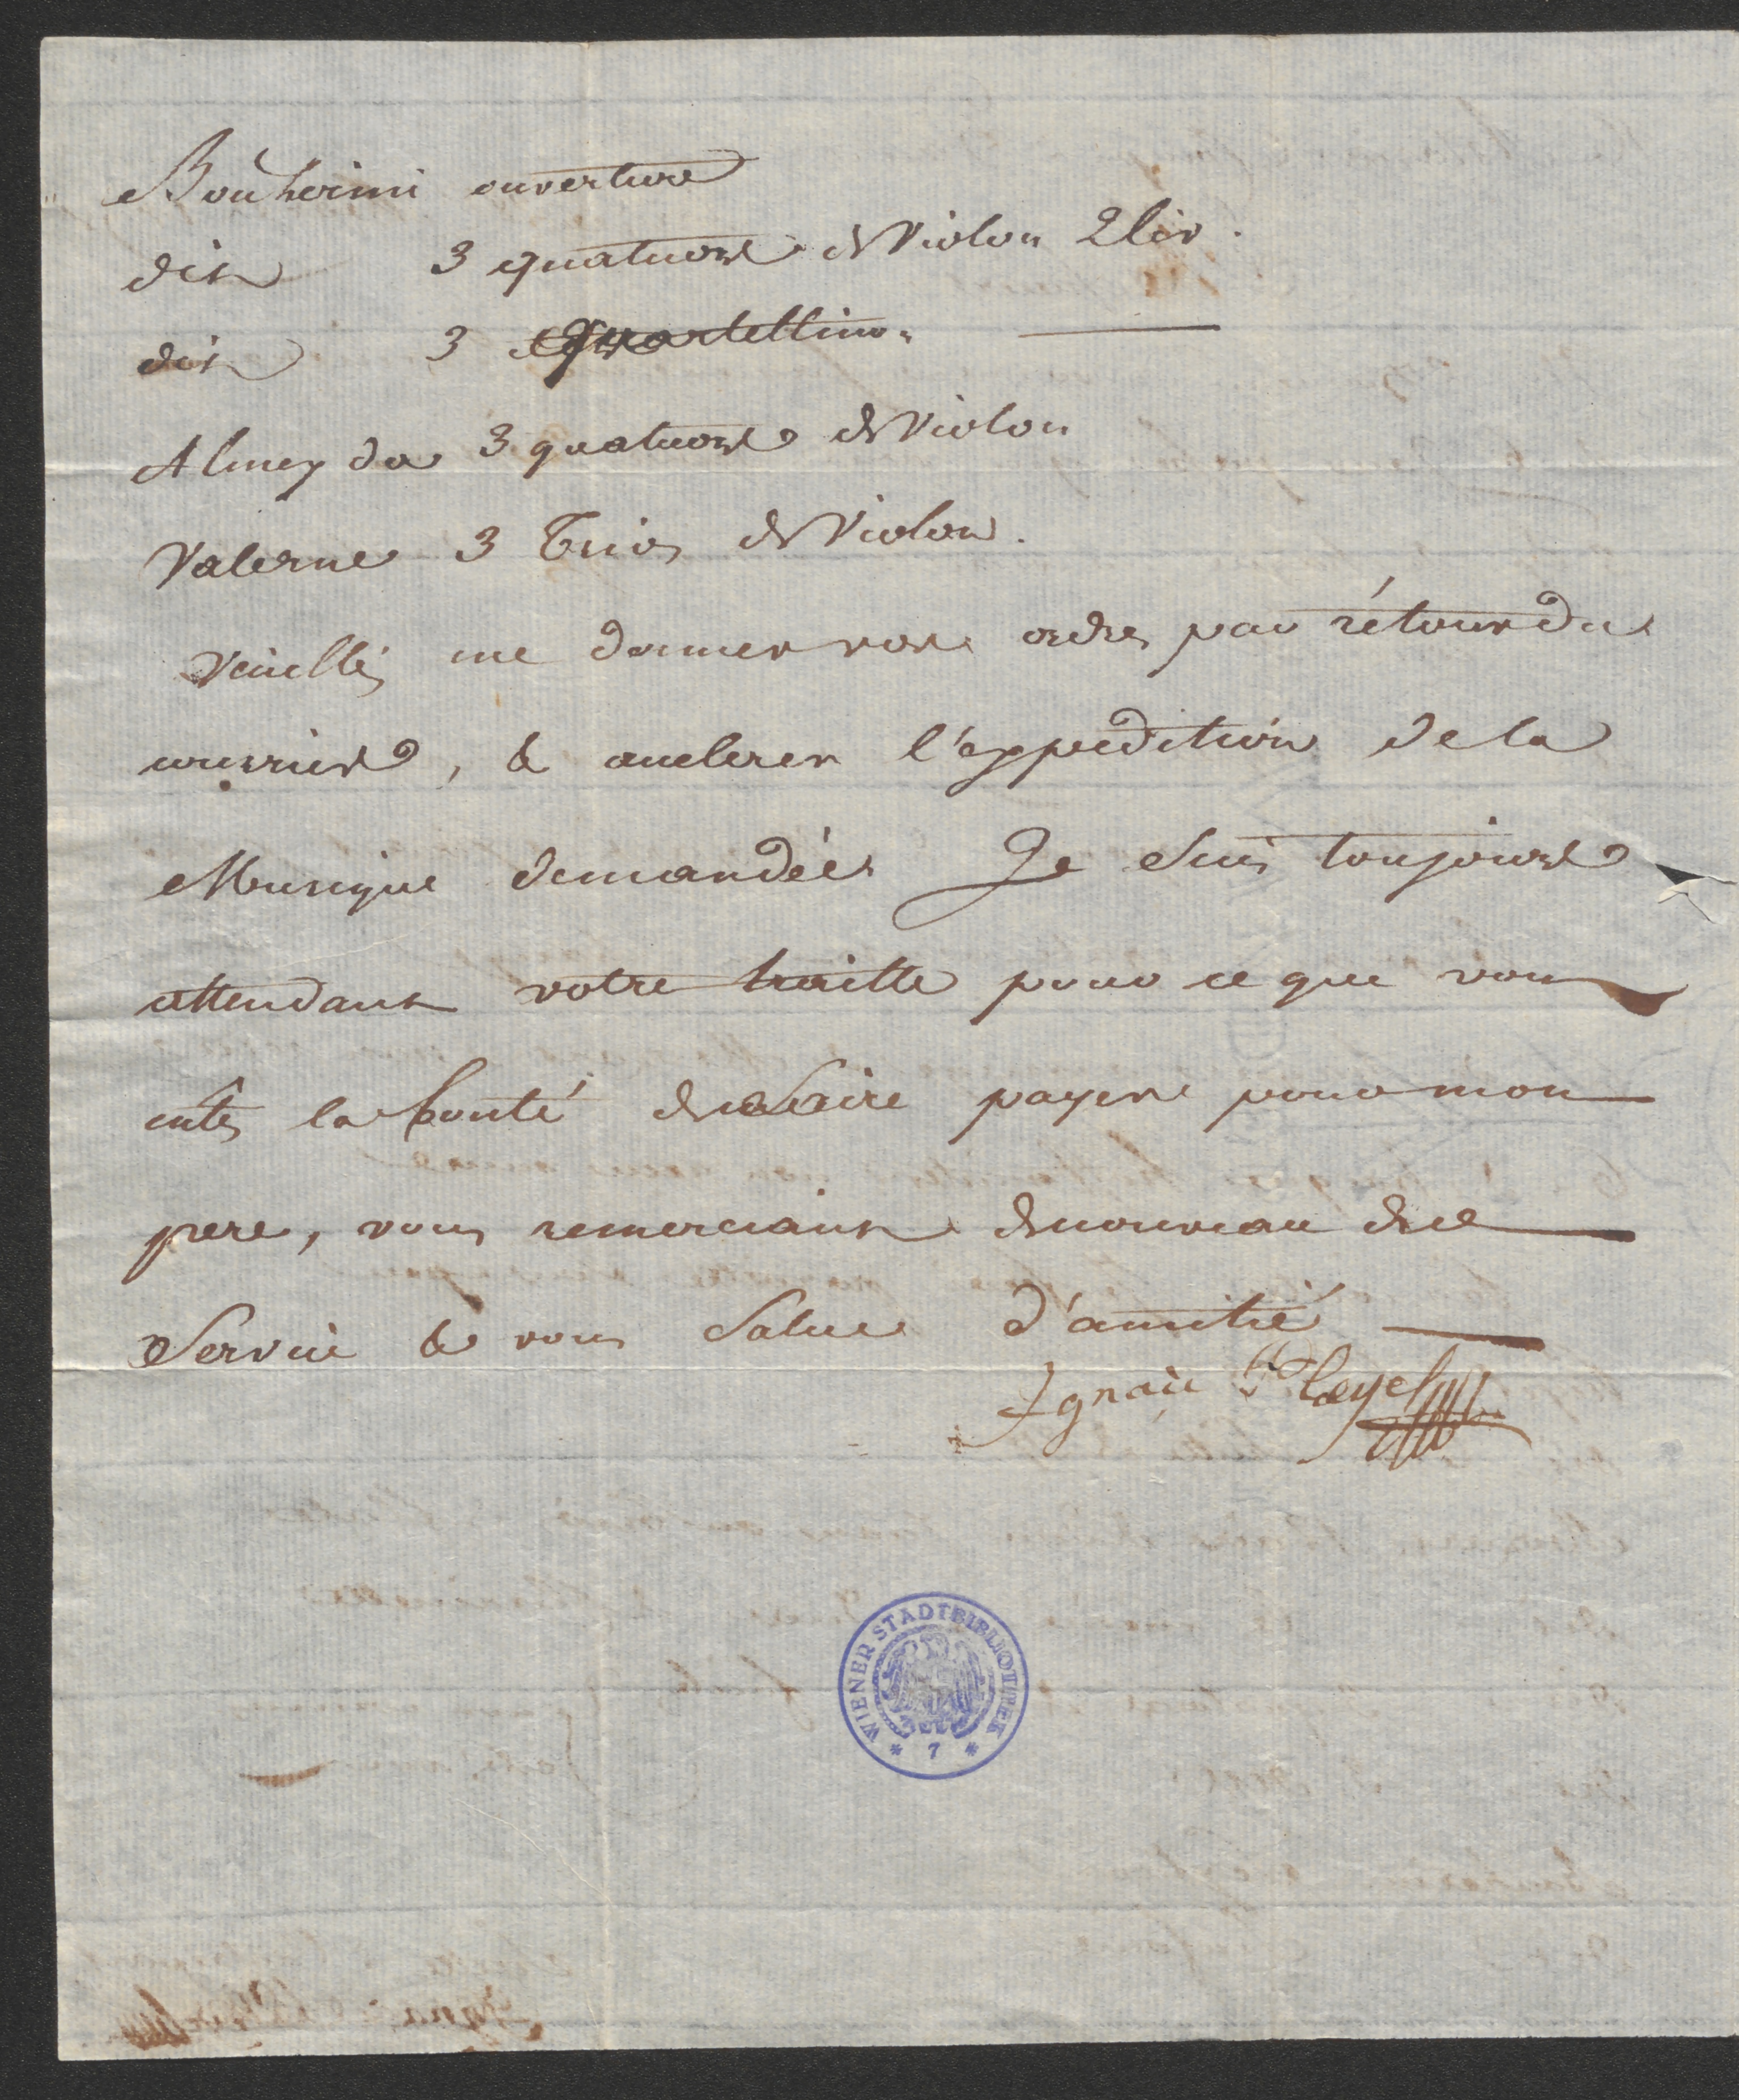 Boucherini ouverture
dit 3 quatuors de Violon 2 liv.
dit 3 Quartettino.
Almeyda 3 quatuors de Violon
Valerne 3 Trios de Violon.
Veuilléz me donner vos ordres par rétour du
courrier, & accelerer l'expedition de la
Musique demandée. Je suis toujours
attendant votre traitte pour ce que vous
eutes la bonté de faire payer pour mon
pere, vous remerciant de nouveau de ce
Service & vous Salue d'amitié
Ignace Pleyel
WIENER STADTBIBLIOTHEK
* 7 *